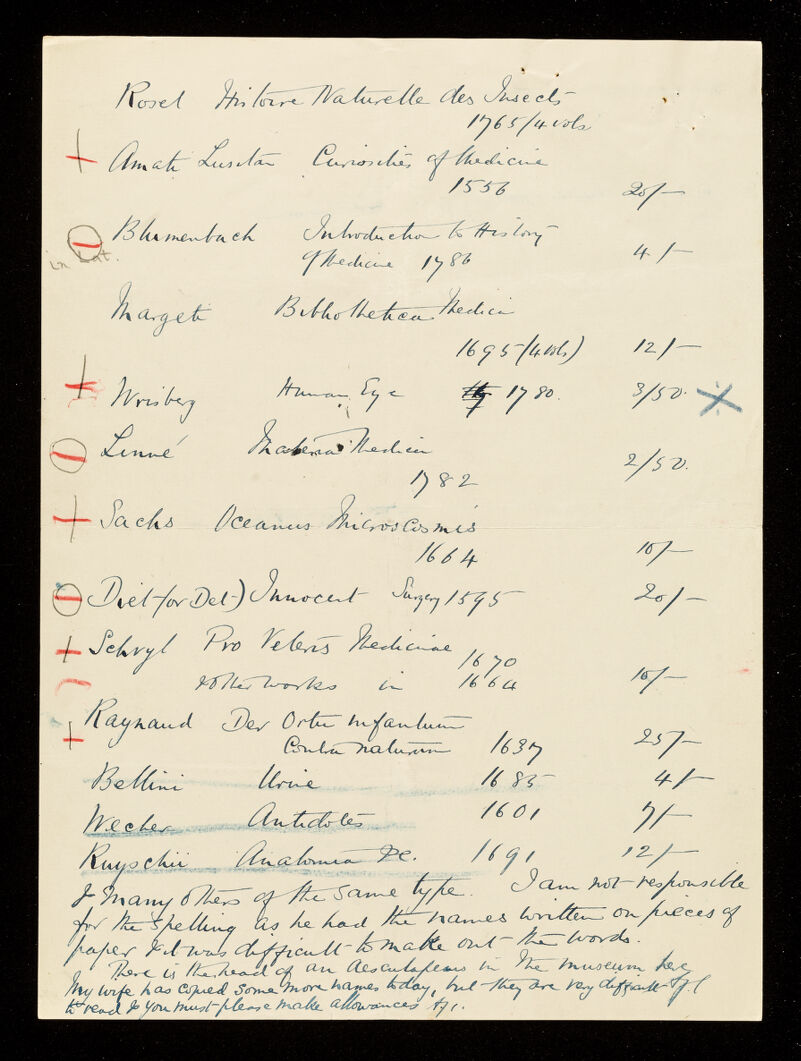 Rosel Histoire Naturelle des Insects
1765/4 vols
Amati Lusitan Curiosities of Medicine
1556 20/-
Blumenbach Introduction to History
of Medicine 1786 4/-
in Lat.
Margeti Bibliothetica Medici
1695 (4 vols) 12/-
Wrisberg Human Eye 1780. 3/50.
Linné Materia Medica
1782 2/50.
Sachs Oceanus Microscosmis
1664 10/-
Diet (or Det-) Innocent Surgery 1595 20/-
Schryl Pro Veteris Medicinae 1670
& other works in 1664 10/-
Raynaud Der Ortu infantum
Contra naturam 1637 25/-
Bellini Urine 1685 4/-
Wecher Antidotes 1601 7/-
Ruyschii Anatomia &c. 1691 12/-
& many others of the same type. I am not responsible
for the spelling as he had the names written on pieces of
paper & it was difficult to make out the words.
There is the head of an Aesculapeus in the museum here
My wife has copied some more names today, but they are very difficult
to read & you must please make allowances